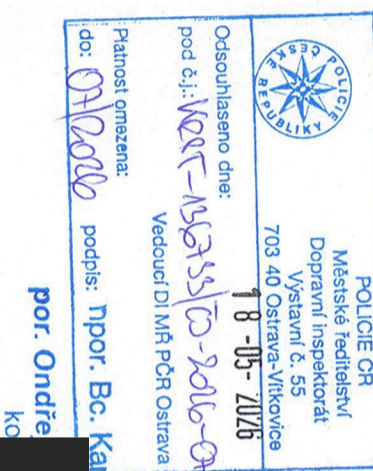 POLICIE ČESKÉ REPUBLIKY
POLICIE ČR
Městské ředitelství
Dopravní inspektorát
Výstavní č. 55
703 40 Ostrava-Vítkovice
Odsouhlaseno dne: 18 -05- 2026
pod č.j.:
Vedoucí DI MŘ PČR Ostrava
Platnost omezena:
do: 07/2026 podpis: npor. Bc. Kar
por. Ondře
ko